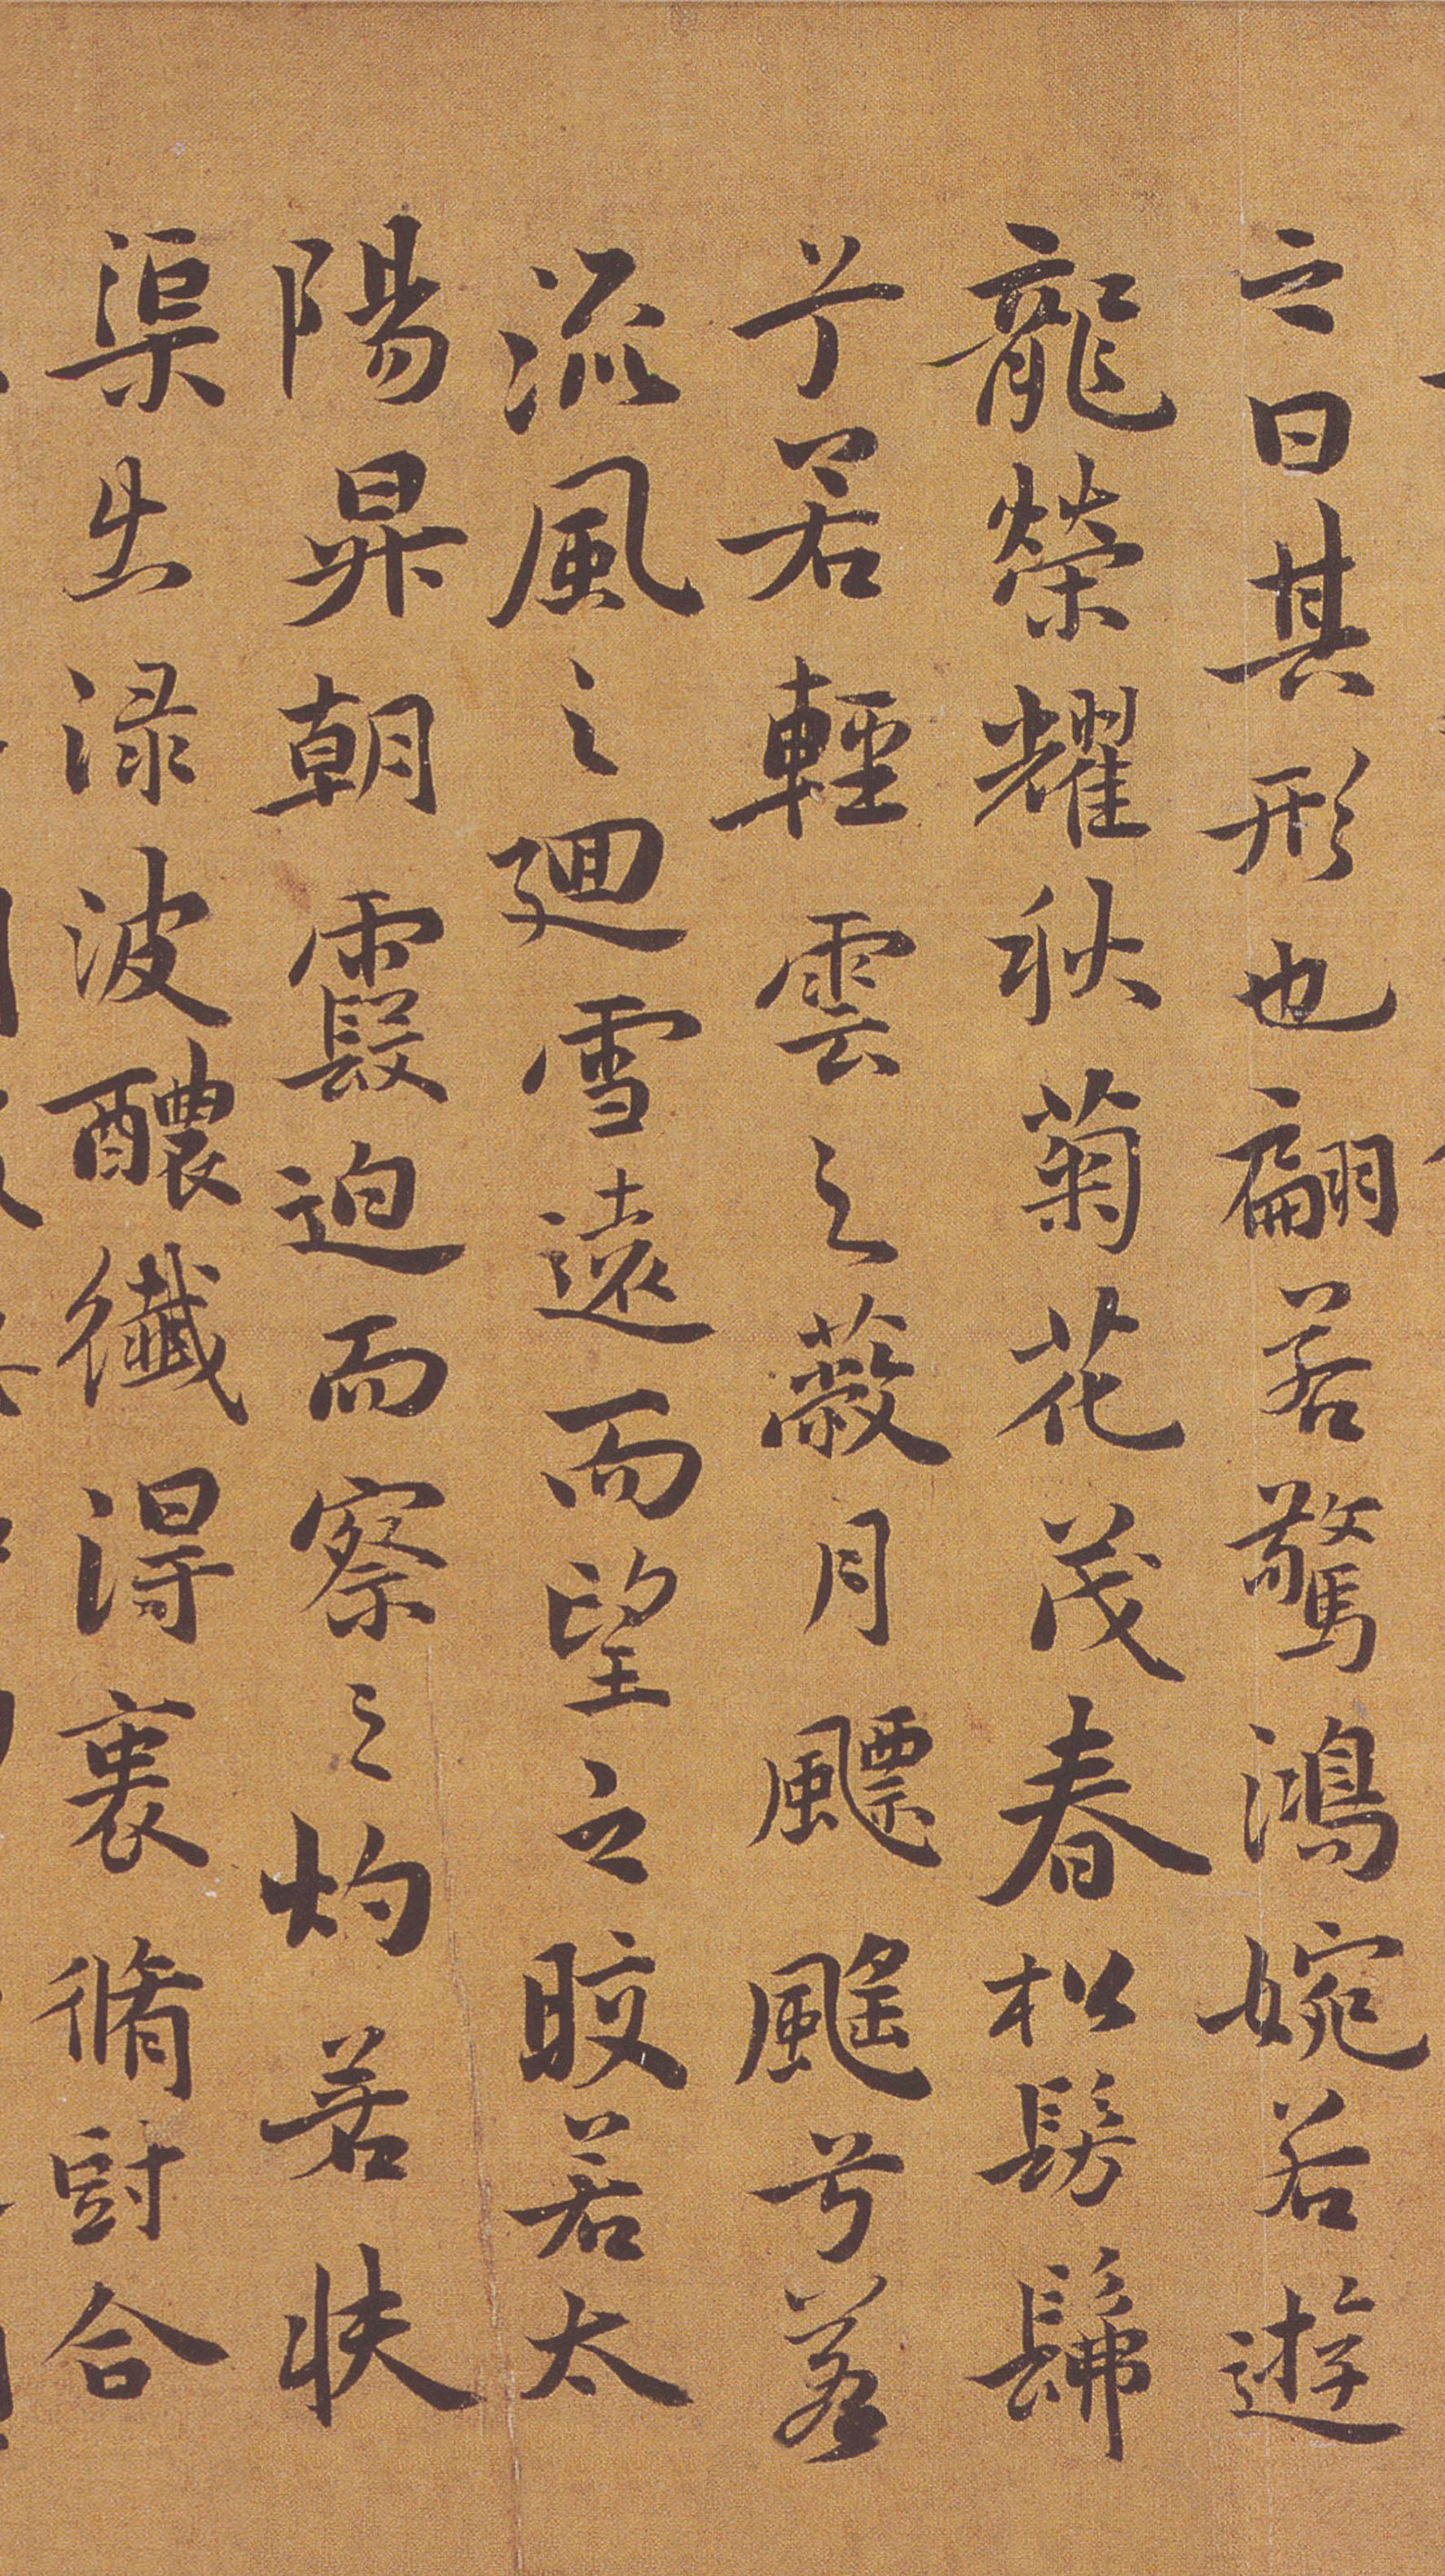 之曰其形也翩若驚鴻婉若遊
龍榮耀秋菊花茂春松髣髴
兮若輕雲之蔽月飃颻兮若
流風之迴雪遠而望之晈若太
陽昇朝霞迫而察之灼若
渠出渌波醲纖得裏脩㝷合